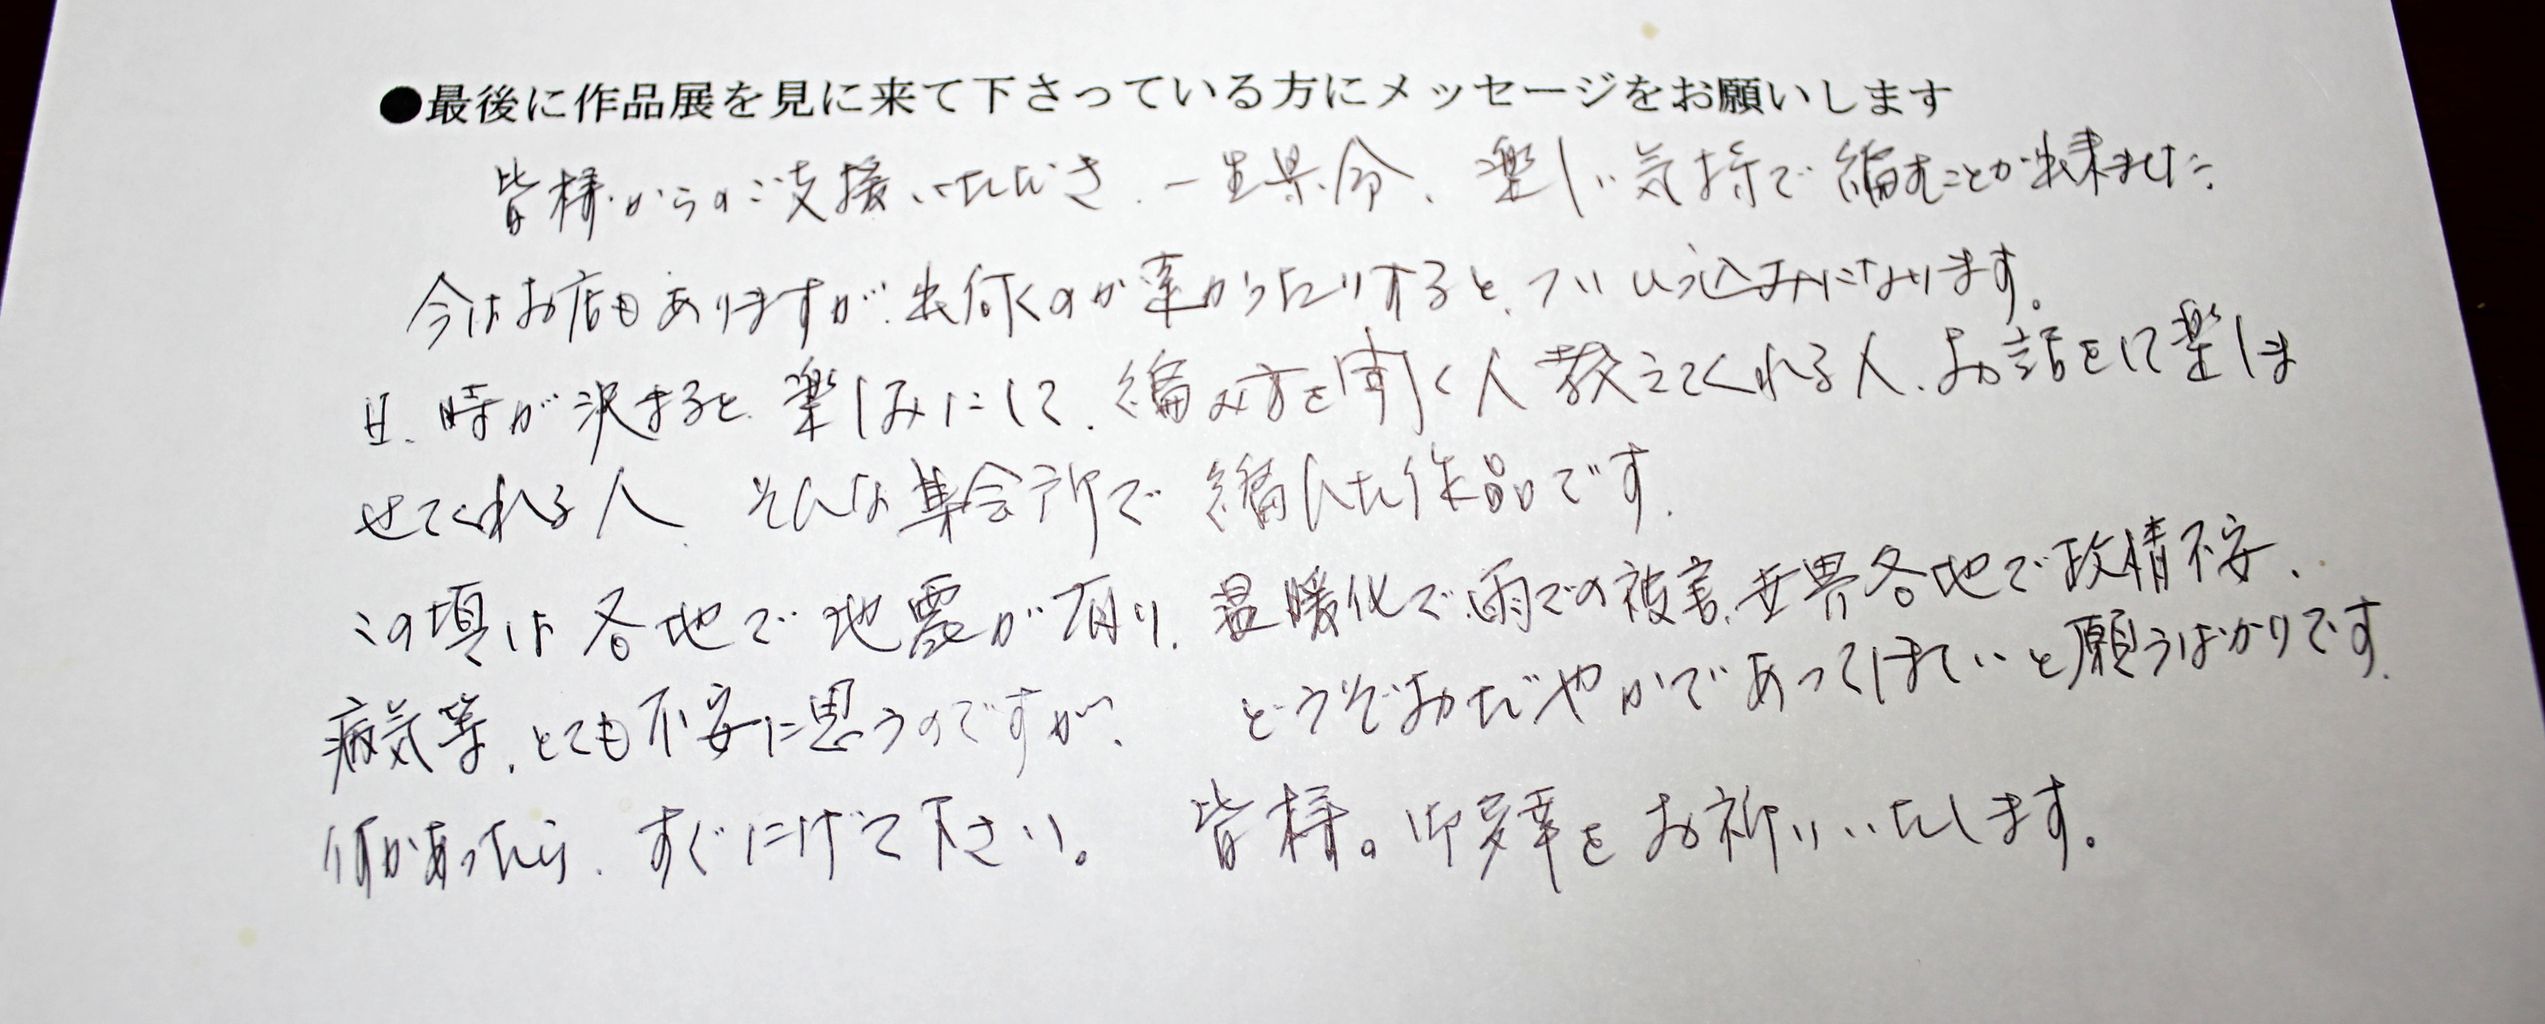 ●最後に作品展を見に来て下さっている方にメッセージをお願いします
皆様からのご支援いただき、一生県命、楽しい気持で編むことが出来ました。
今はお店もありますが、出何くのが辛かったりすると、ついひっ込みになります。
日、時が決まると、楽しみにして、編み方を聞く人教えてくれる人、お話をして楽しま
せてくれる人、そんな集会所で編んだ作品です。
この頃は各地で地震が有り、温暖化で、雨での被害、世界各地で政情不安、
病気等、とても不安に思うのですが、どうぞおだやかであってほしいと願うばかりです。
何かあったら、すぐにげて下さい。皆様の御多幸をお祈りいたします。